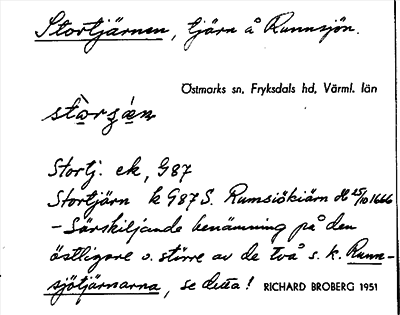 Stortjärnen, tjärn å Runnsjön.
Östmarks sn, Fryksdals hd, Värml. län
Stortj. ek, G87
Stortjärn k G87 S. Rumsiökiärn dl 25/10 1666
- Särskiljande benämning på den
östligare o. större av de två s. k. Runn-
sjötjärnarna, se detta! RICHARD BROBERG 1951